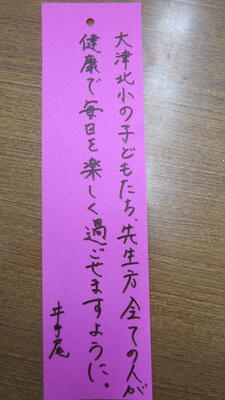 大津北小の子どもたち、先生方 全ての人が
健康で毎日を楽しく過ごせますように。
井手尾